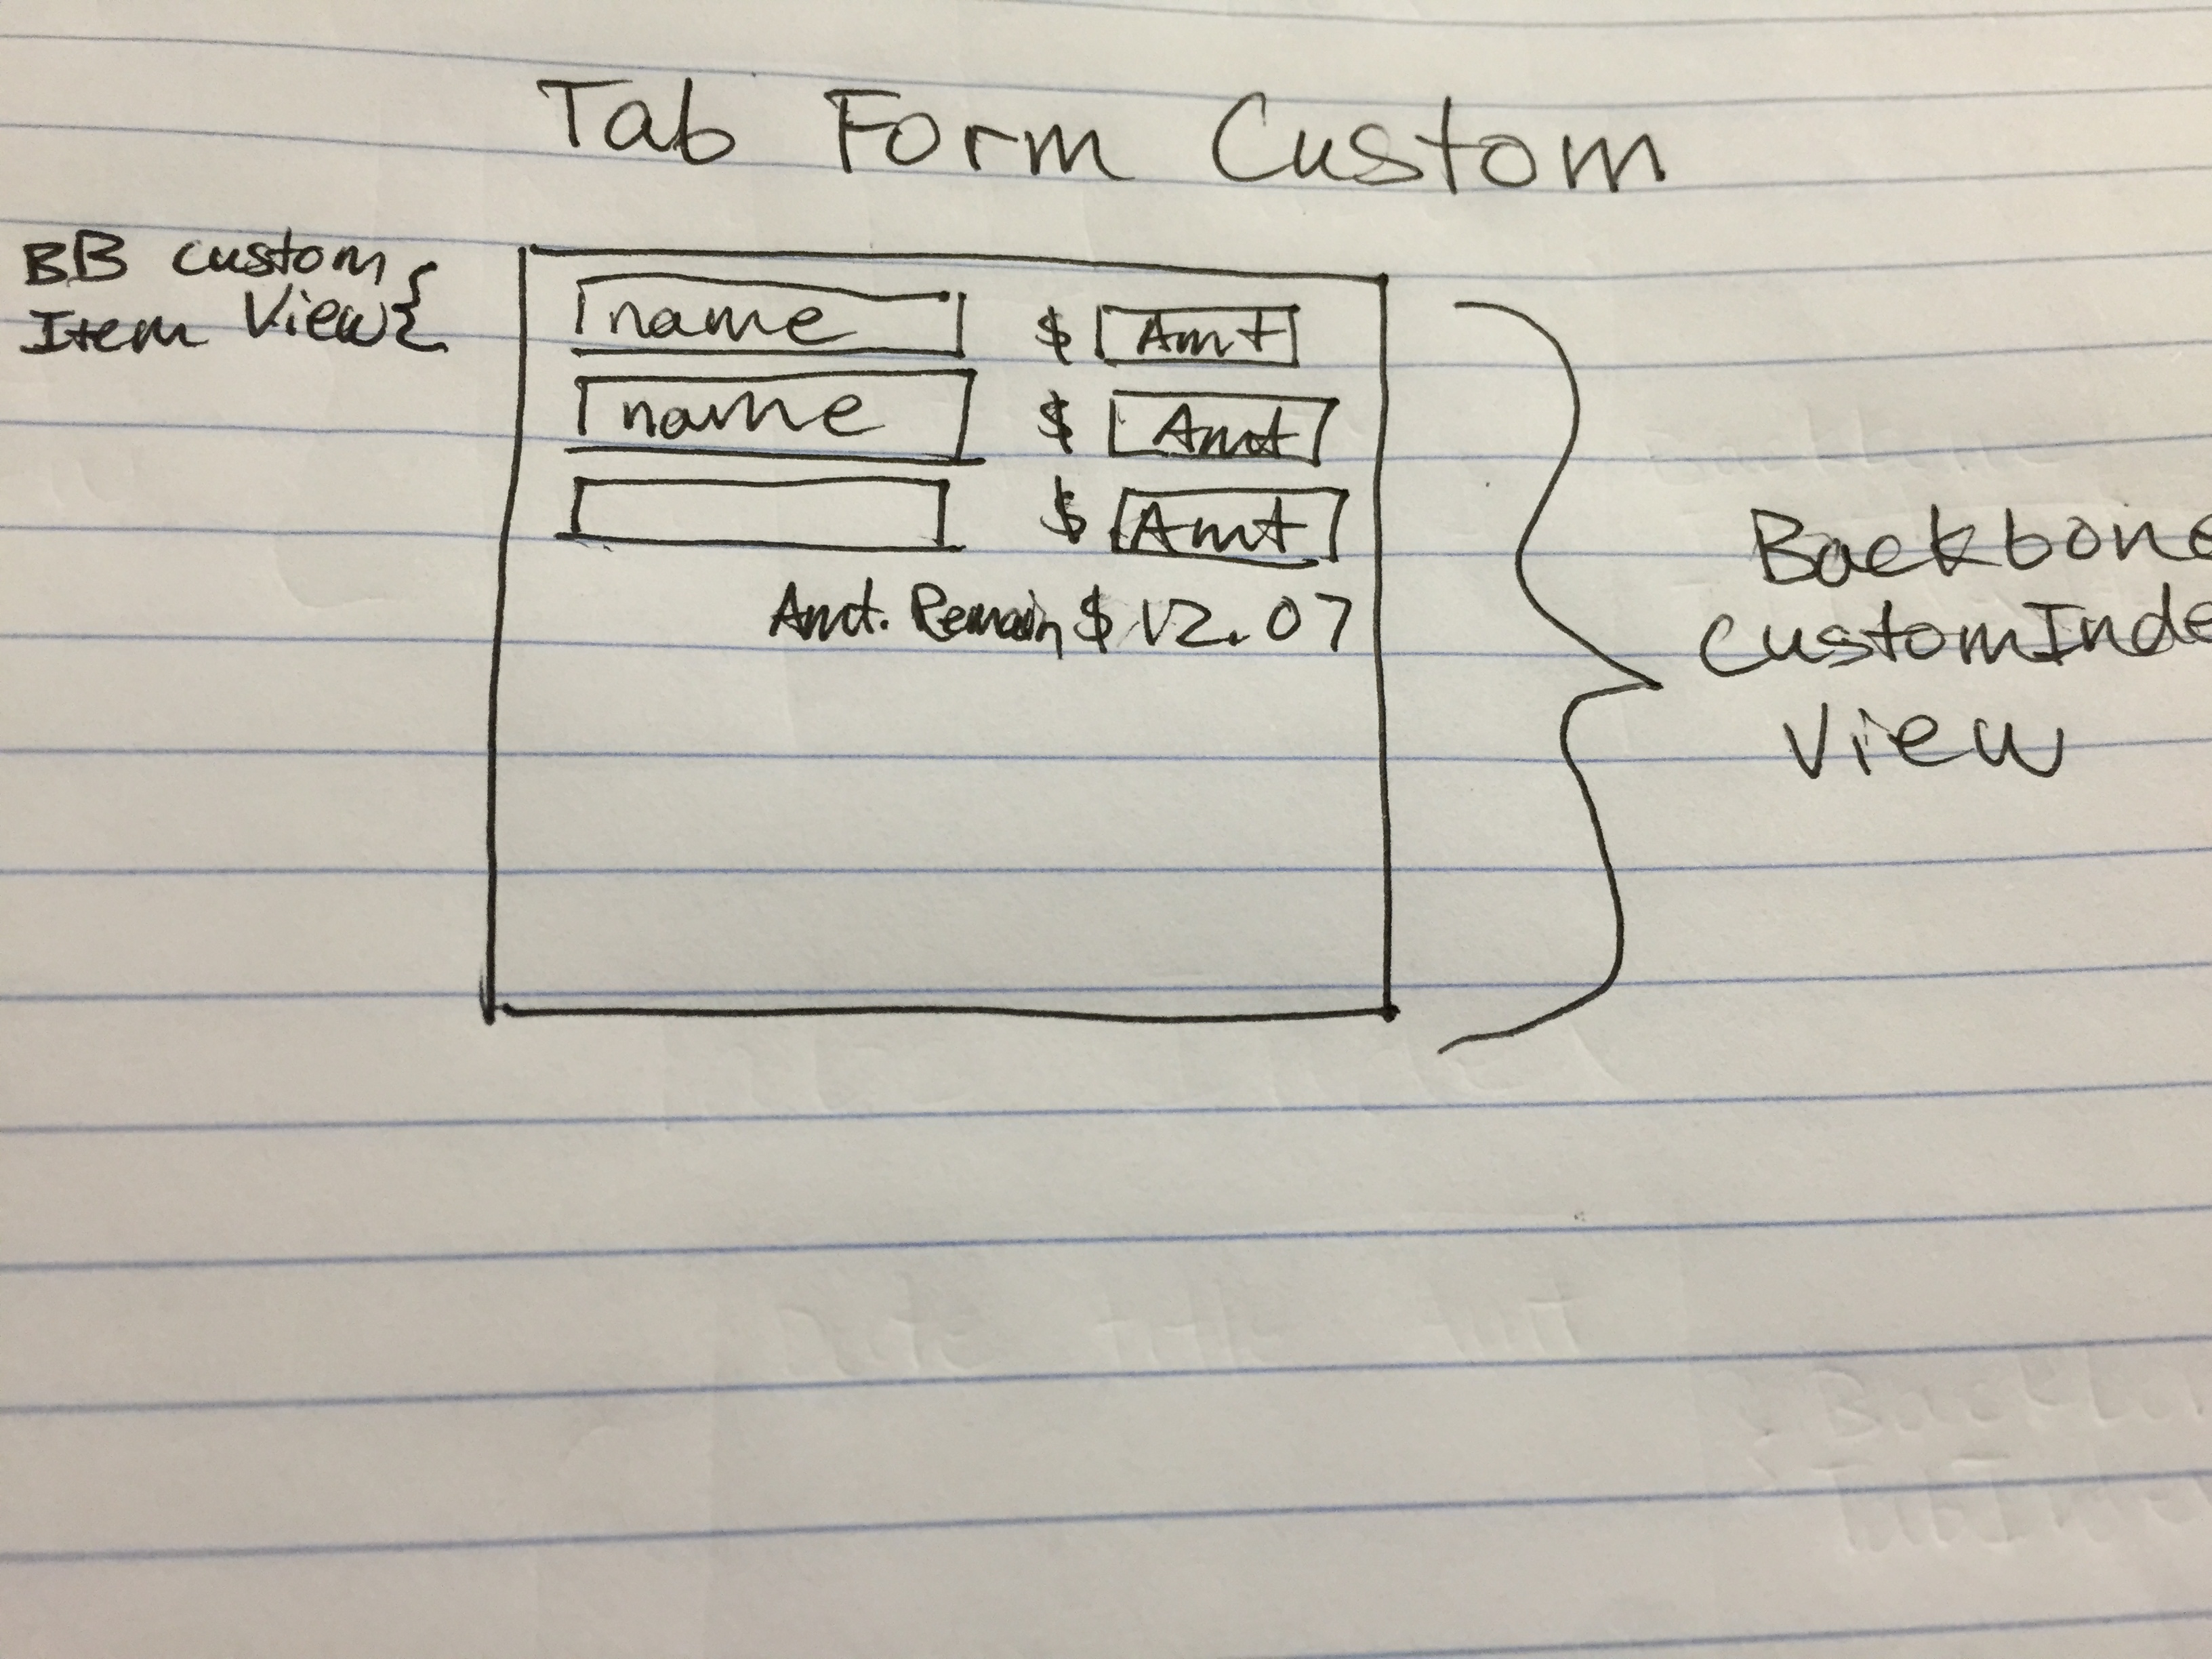 Tab Form Custom
BB custom
Item View
name $ Amt
name $ Amt
$ Amt
Amt. Remain $ 12.07
Backbone
CustomInde
View